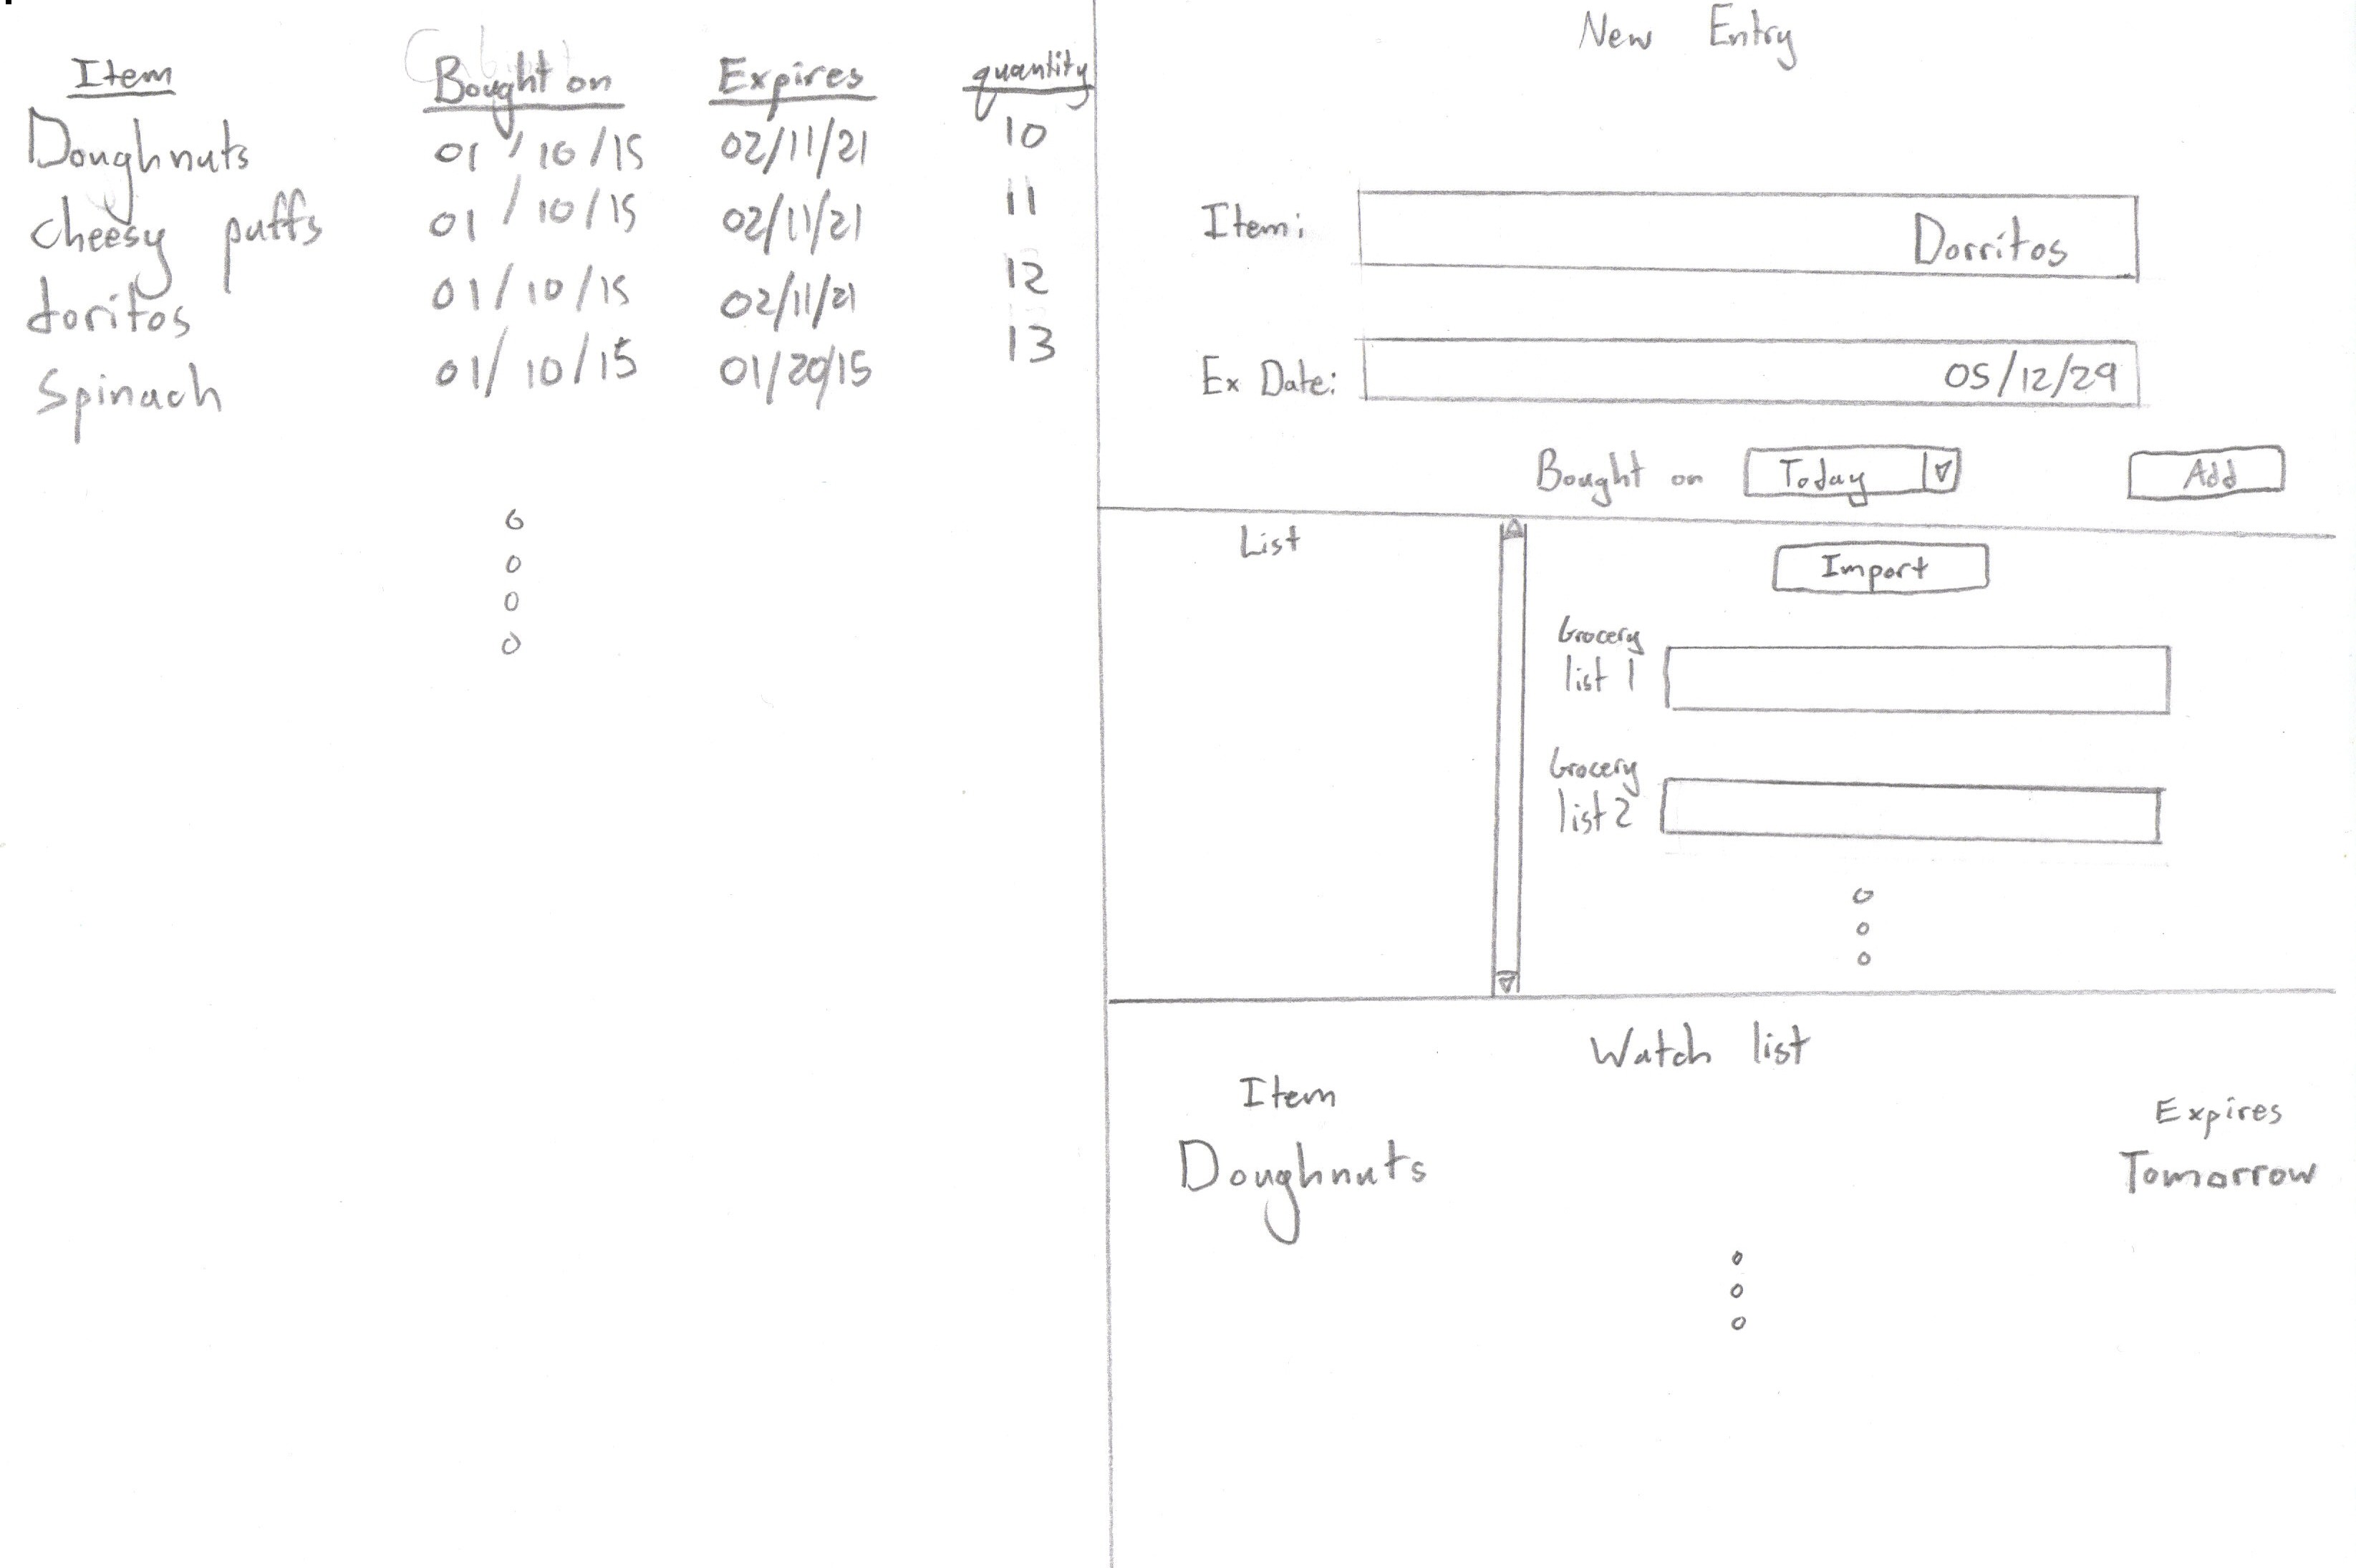 Item Bought on Expires quantity
Doughnuts 01/10/15 02/11/21 10
cheesy puffs 01/10/15 02/11/21 11
doritos 01/10/15 02/11/21 12
Spinach 01/10/15 01/20/15 13
New Entry
Item: Dorritos
Ex Date: 05/12/29
Bought on Today Add
List
Import
Grocery
list 1
Grocery
list 2
Watch list
Item Expires
Doughnuts Tomorrow